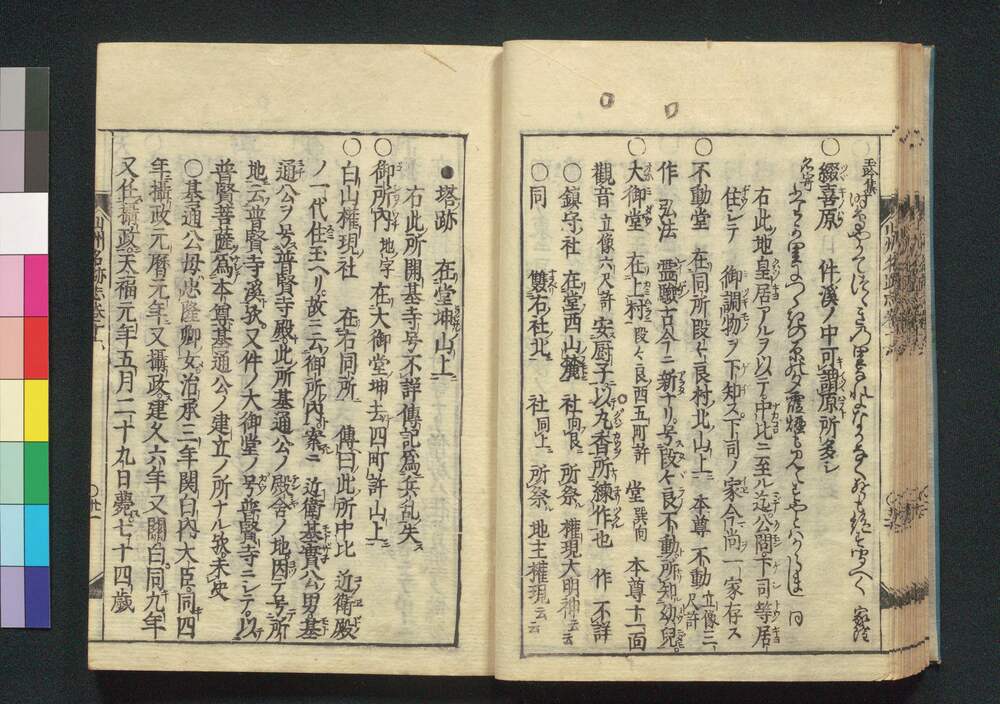 ○綴喜原 件溪ノ中可謂原所多シ
右此地皇居アルヲ以テ中比ニ至ル迄公閤下司等居
住シテ 御調物ヲ下知ス下司ノ家今尚一家存ス
○不動堂 在同所段々良村北山上 本尊 不動立像三尺許
作 弘法 霊驗古今ニ新ナリ号段々良不動所知幼兒
○大御堂 在上村段々良西五町許 堂巽向 本尊十一面
觀音立像六尺許 安厨子以丸香所練作也 作不詳
○鎮守社 在堂西山麓 社向艮 所祭權現大明神云云
○同 雙右社北 社同上 所祭地主權現云云
●塔跡 在堂坤山上
右此所開基寺号不詳傳記為兵乱失
○御所内地字 在大御堂坤去四町許山上
○白山權現社 在右同所 傳曰此所中比 近衛殿
ノ一代住玉ヘリ故ニ云御所内案ニ 近衛基實公男基
通公ヲ号普賢寺殿此所基通公ノ殿舎ノ地因テ号所
地云普賢寺溪欤又件ノ大御堂ノ号普賢寺ニシテ以
普賢菩薩為本尊基通公ノ建立ノ所ナル欤未史
○基通公母忠隆卿女治承三年関白内大臣同四
年攝政元暦元年又攝政建久六年又關白同九年
又任攝政天福元年五月二十九日薨七十四歳